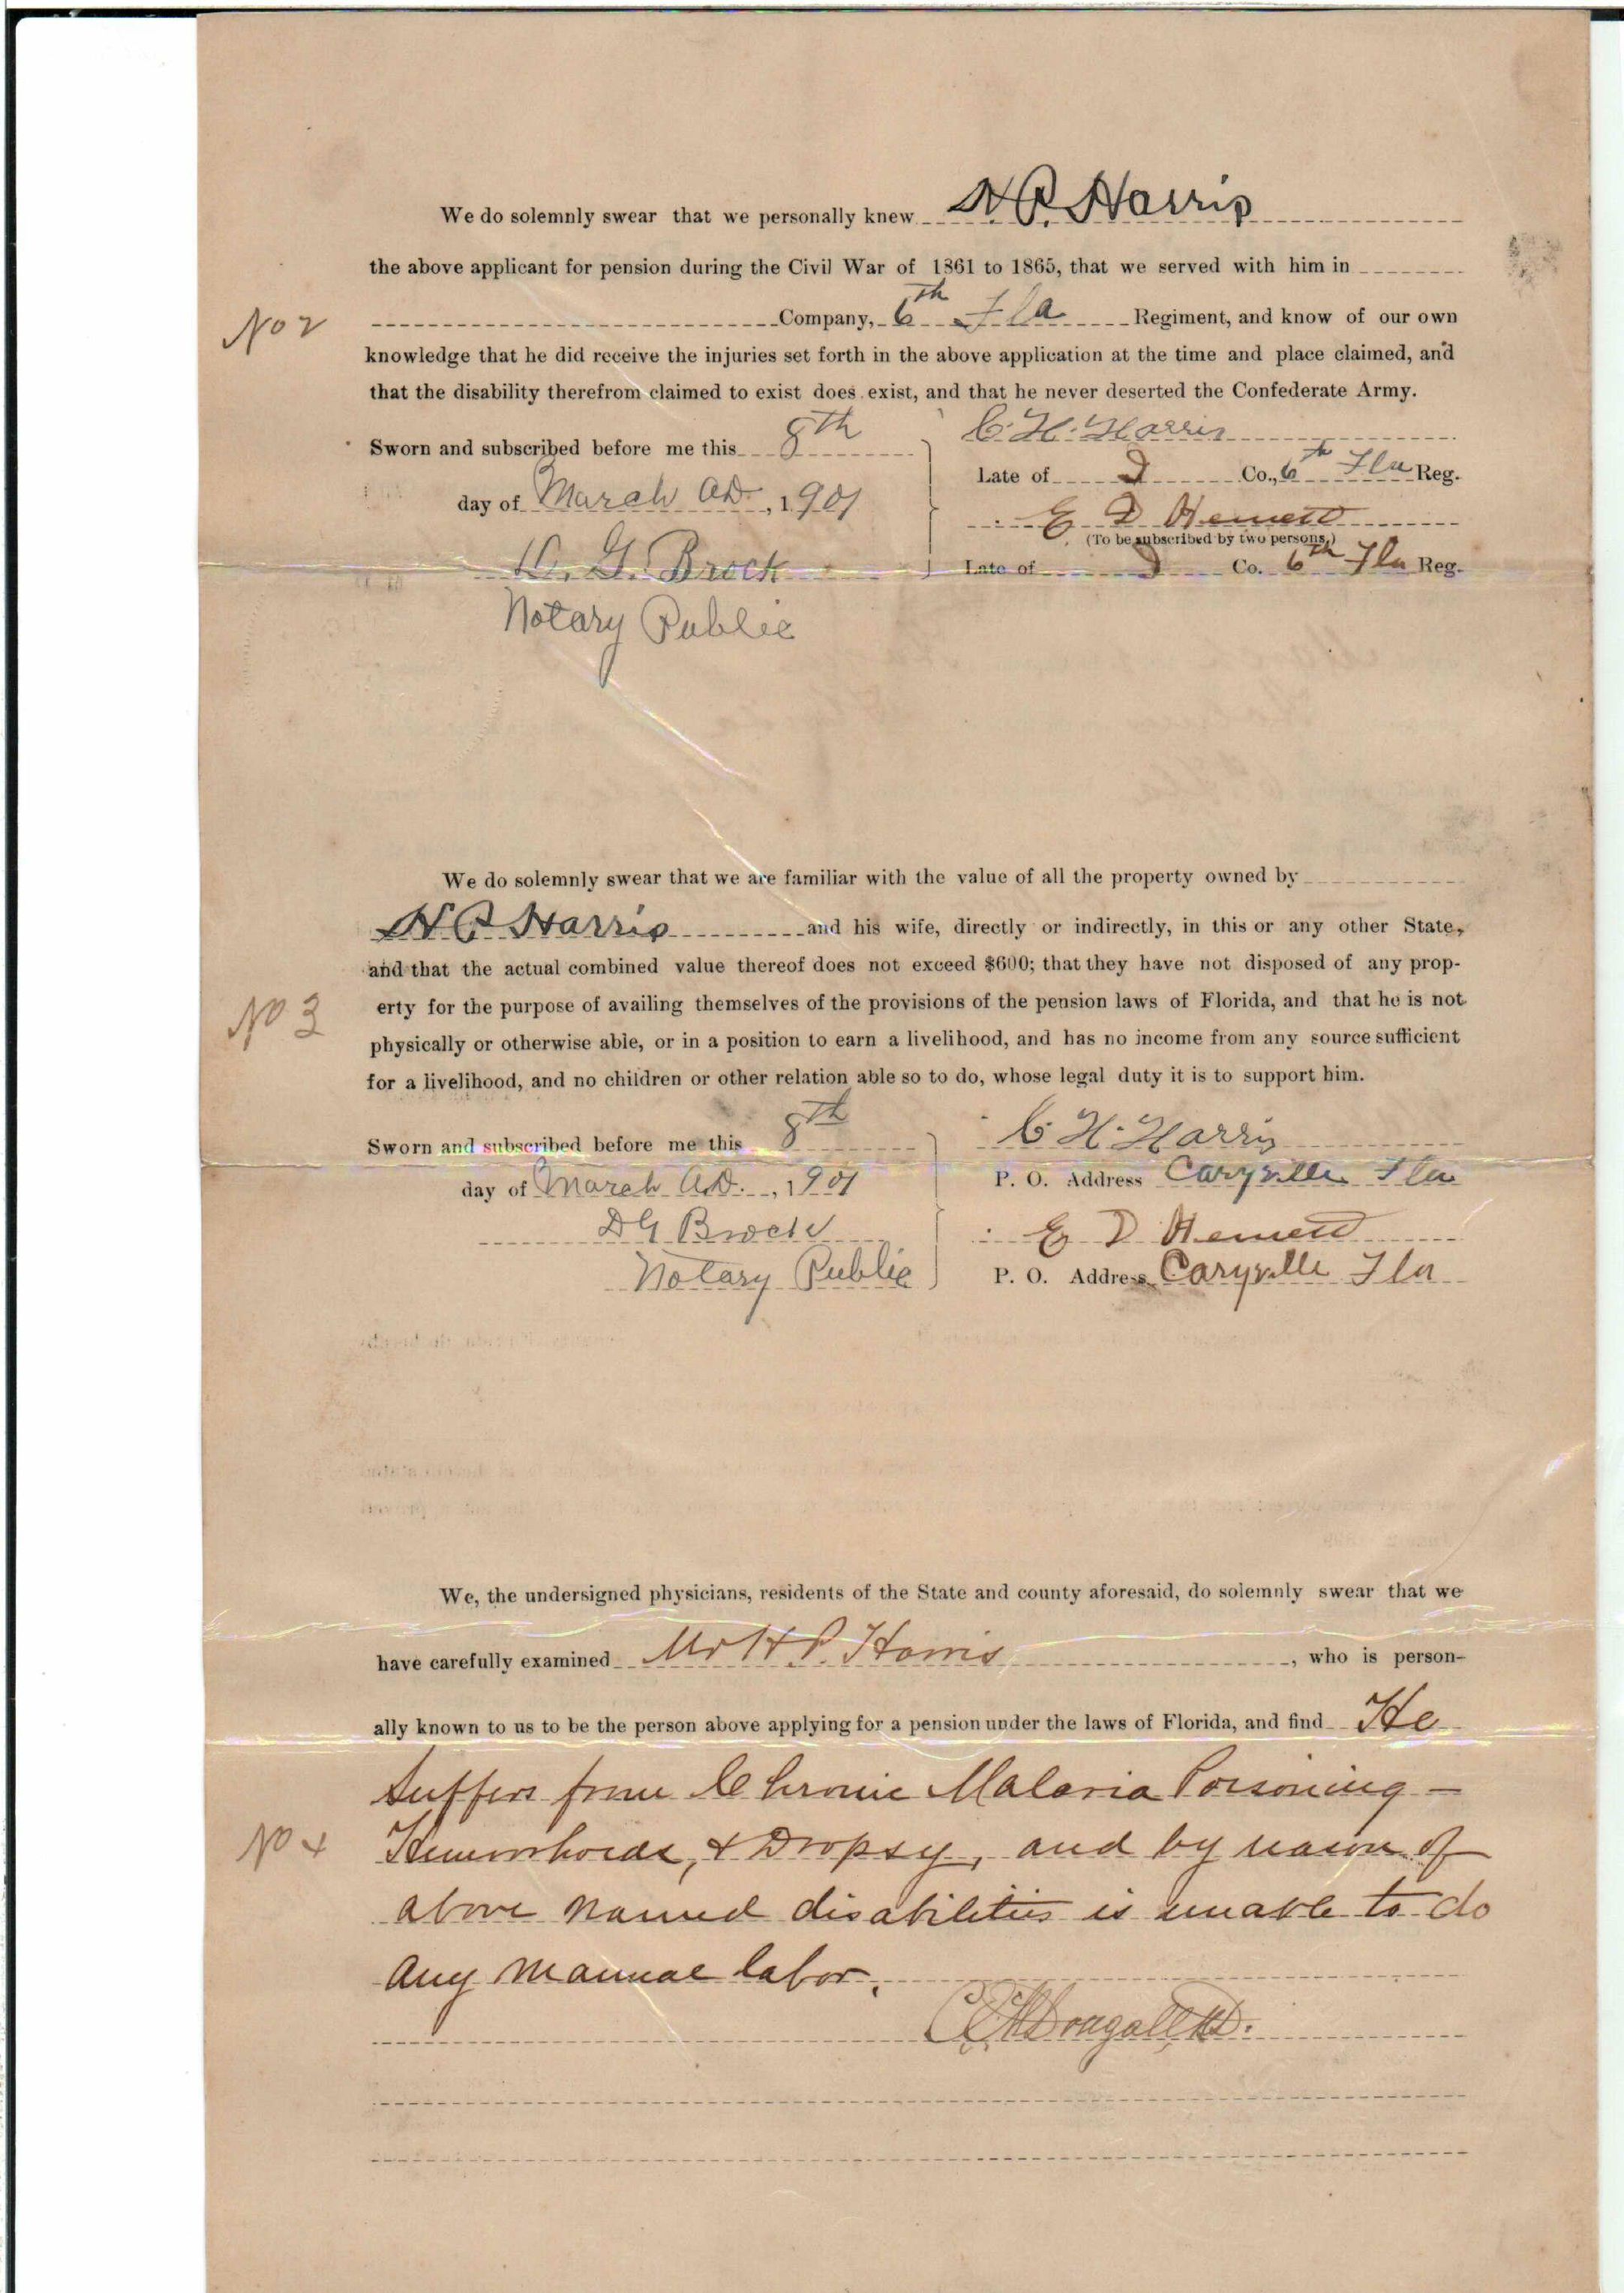 We do solemnly swear that we personally knew H. P. Harris
the above applicant for pension during the Civil War of 1861 to 1865, that we served with him in
No 2
Company, 6th Fla Regiment, and know of our own
knowledge that he did receive the injuries set forth in the above application at the time and place claimed, and
that the disability therefrom claimed to exist does exist, and that he never deserted the Confederate Army.
Sworn and subscribed before me this 8th
day of March A.D., 1901
D. G. Brock
Notary Public
C. H. Harris
Late of Co., 6th Fla Reg.
E D
(To be subscribed by two persons.)
Late of Co. 6th Fla Reg.
We do solemnly swear that we are familiar with the value of all the property owned by
H P Harris and his wife, directly or indirectly, in this or any other State,
and that the actual combined value thereof does not exceed $600; that they have not disposed of any prop-
No 3
erty for the purpose of availing themselves of the provisions of the pension laws of Florida, and that he is not
physically or otherwise able, or in a position to earn a livelihood, and has no income from any source sufficient
for a livelihood, and no children or other relation able so to do, whose legal duty it is to support him.
Sworn and subscribed before me this 8th
day of March A.D., 1901
D G Brock
Notary Public
C. H. Harris
P. O. Address Caryville Fla
E D
P. O. Address Caryville Fla
We, the undersigned physicians, residents of the State and county aforesaid, do solemnly swear that we
have carefully examined Mr H. P. Harris, who is person-
ally known to us to be the person above applying for a pension under the laws of Florida, and find He
Suffers from Chronic Malaria Poisoning —
No 4
Hemorrhoids, & Dropsy, and by reason of
above named disabilities is unable to do
any manual labor.